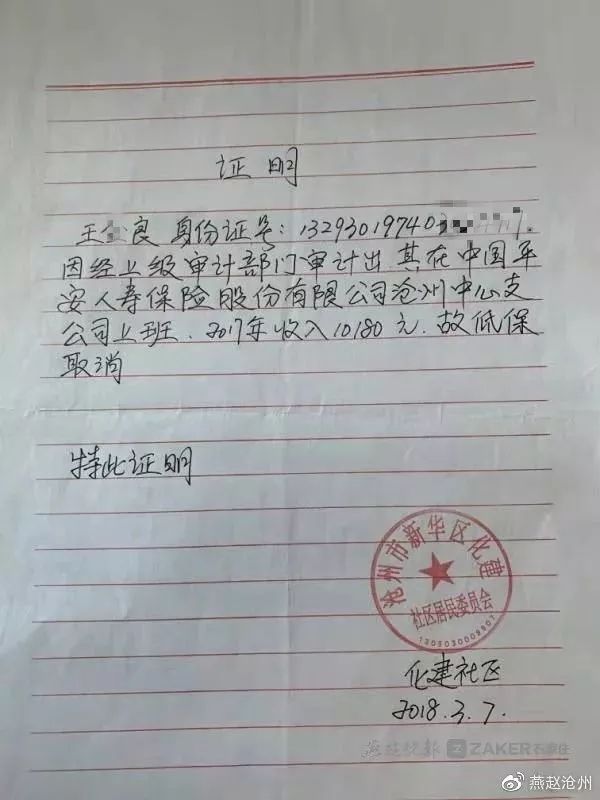 证明
王 良 身份证号：13293019740
因经上级审计部门审计出 其在中国平
安人寿保险股份有限公司沧州中心支
公司上班．2017年收入10180元．故低保
取消
特此证明
沧州市新华区化建
社区居民委员会
化建社区
2018.3.7.
燕赵晚报 ZAKER石家庄
@燕赵沧州